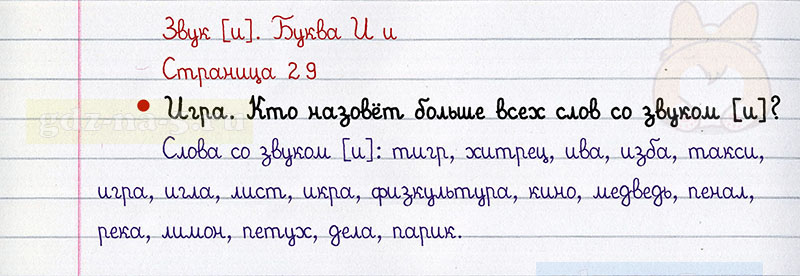 Звук [и]. Буква И и
Страница 29
• Игра. Кто назовёт больше всех слов со звуком [и]?
Слова со звуком [и]: тигр, хитрец, ива, изба, такси,
игра, игла, лист, икра, физкультура, кино, медведь, пенал,
река, лимон, петух, дела, парик.
gdz-na-5.ru